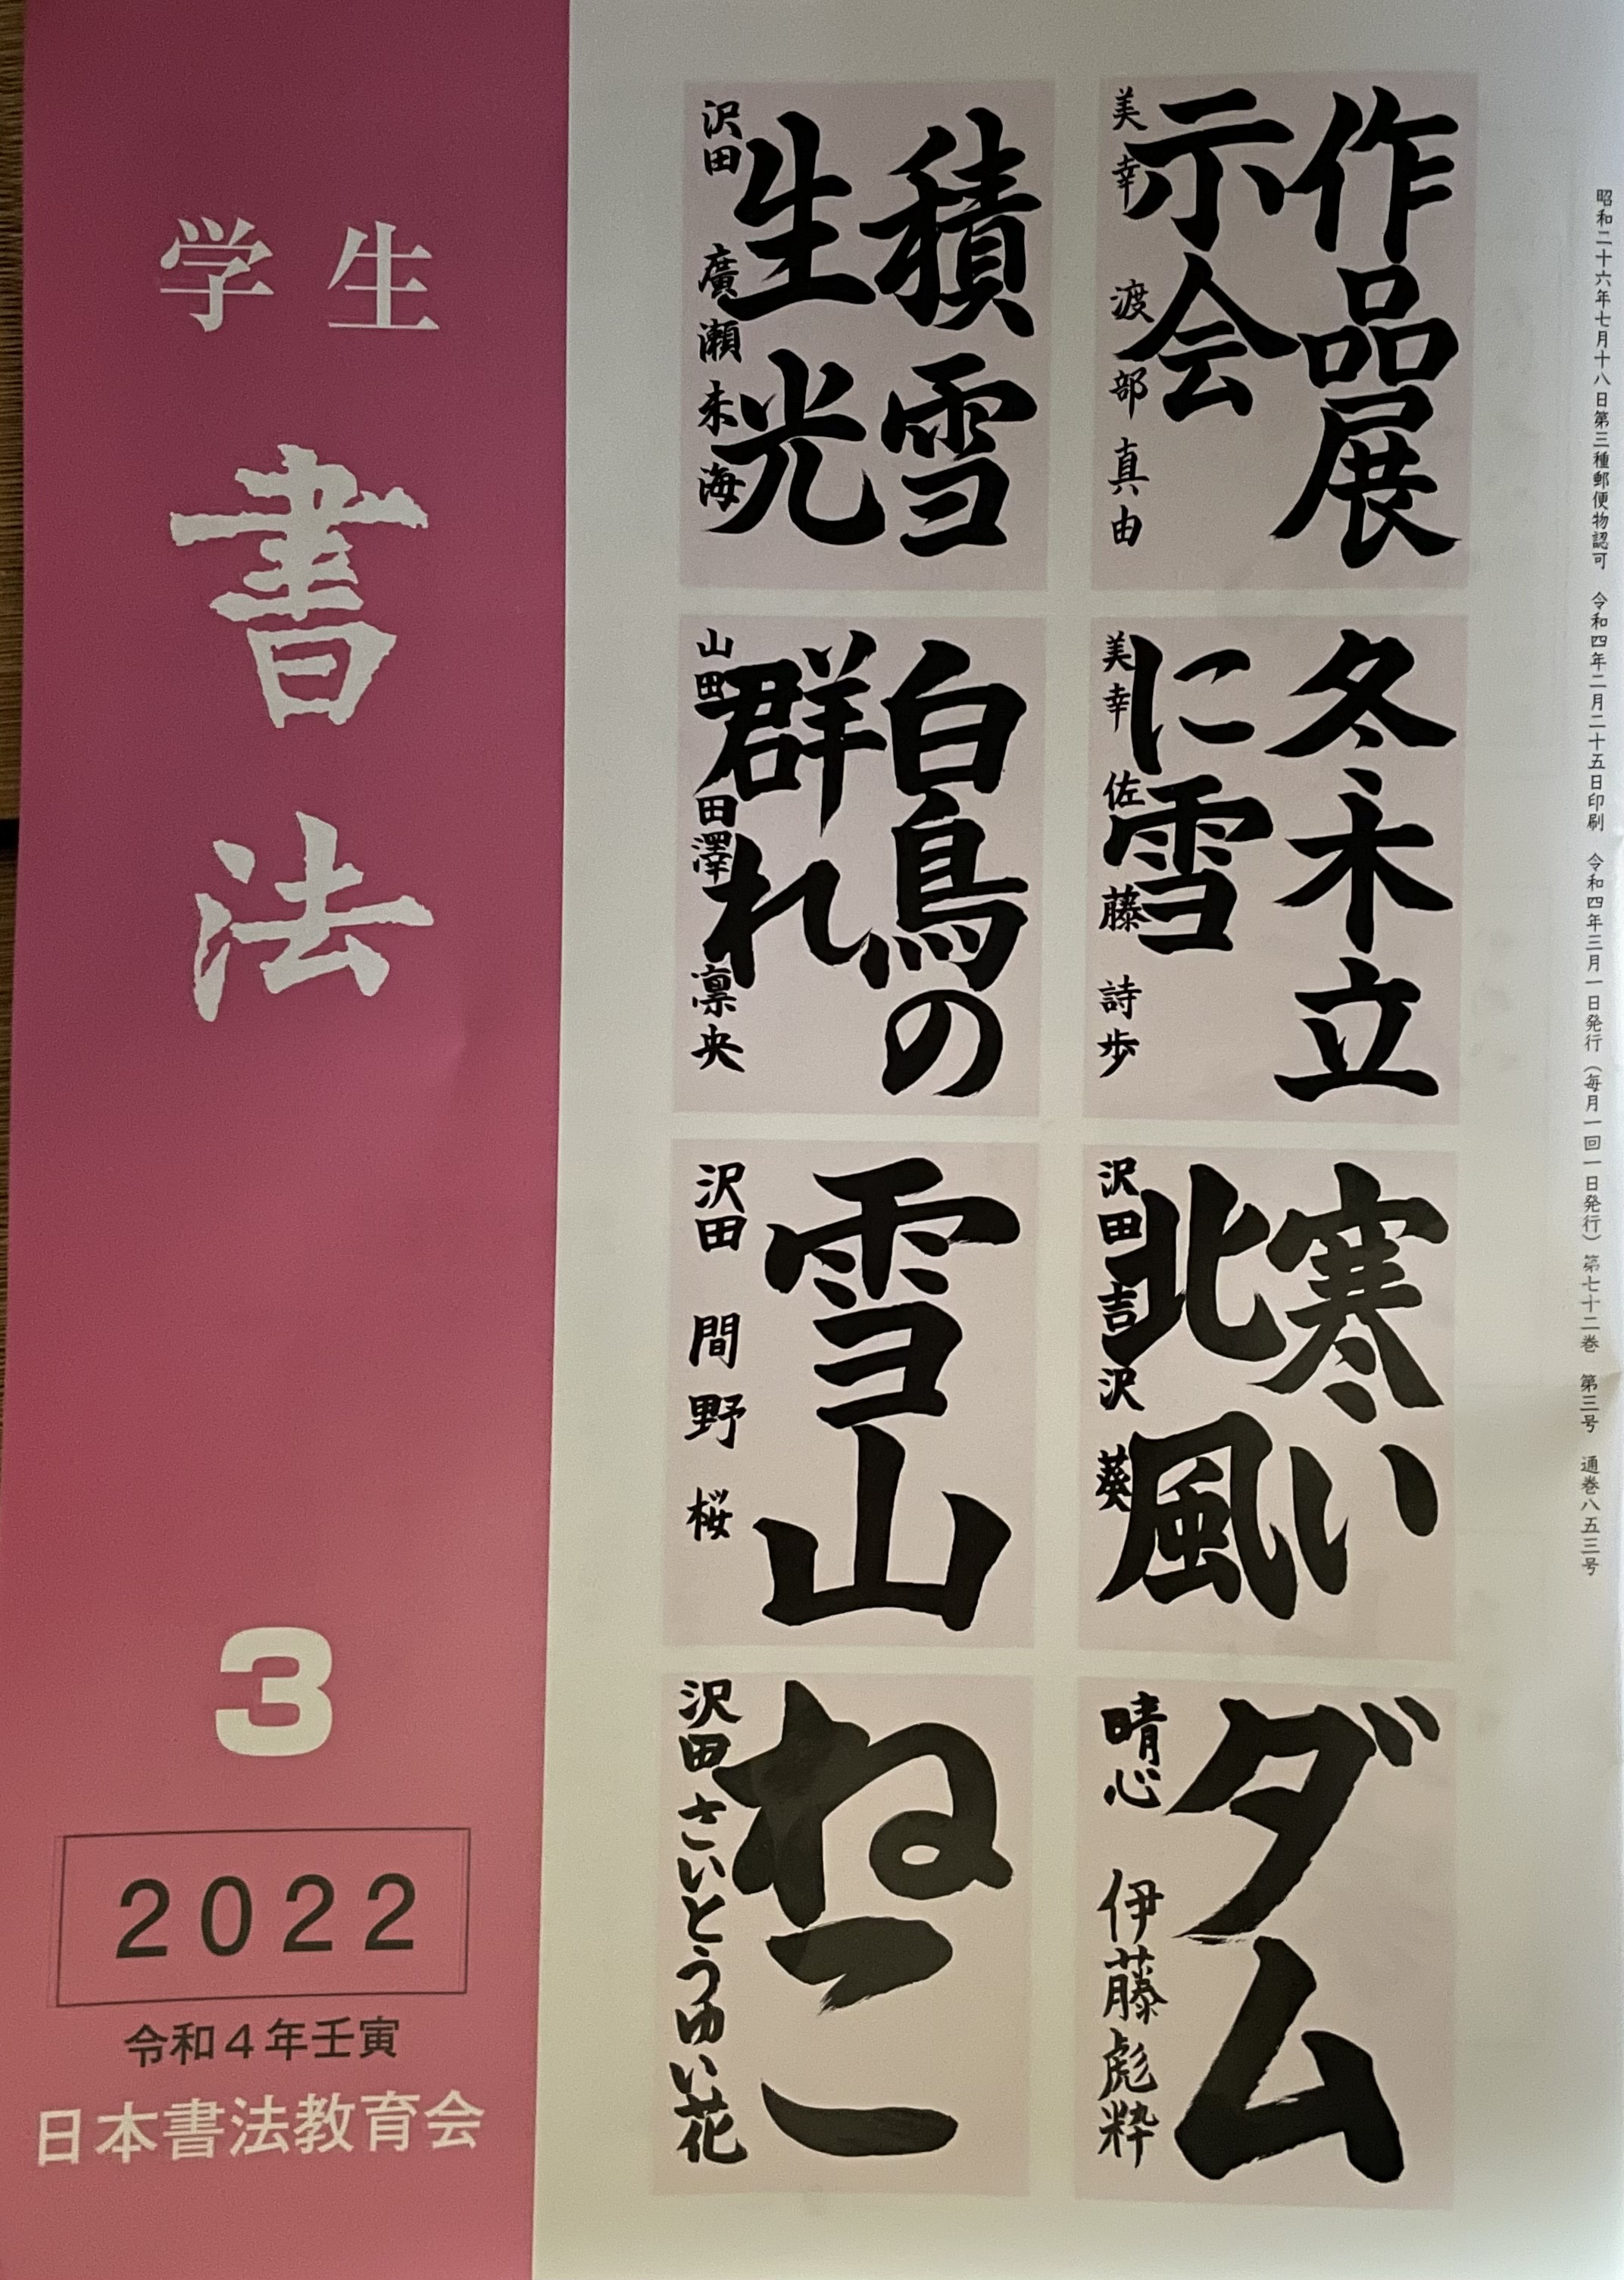 昭和二十六年七月十八日第三種郵便物認可　令和四年二月二十五日印刷　令和四年三月一日発行（毎月一回一日発行）第七十二巻　第三号　通巻八五三号
作品展
示会
美幸　渡部真由
積雪
生光
沢田　廣瀬未海
冬木立
に雪
美幸　佐藤詩歩
白鳥の
群れ
山田　田澤凛央
寒い
北風
沢田　吉沢葵
雪山
沢田　間野桜
ダム
晴心　伊藤彪粋
ねこ
沢田　さいとうゆい花
学生
書法
3
2022
令和4年壬寅
日本書法教育会